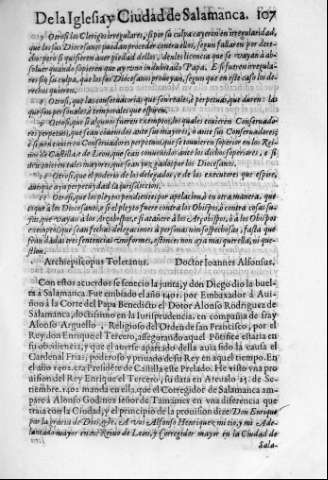 De la Iglesia y Ciudad de Salamanca. 107
Otrosi los Clerigos irregulares, si por su culpa cayeron en irregularidad,
que los sus Diocesanos puedan proceder contra ellos, segun fallaren por dere-
cho: pero si quisieren auer piedad dellos, denles licencia que se vayan à ab-
soluer quando supieren que ay vno indubitado Papa. E si fueren irregula-
res sin su culpa, que los sus Diocesanos prouean, segun que en este caso los de-
rechos quieren.
Otrosi, que las conseruatorias que son reales, è perpetuas, que duren: las
que son personales è temporales que espiren.
Otrosi, que si algunos fueren exemptos, los quales ouieren Conseruado-
res perpetuos, que sean conuenidos ante sus mayores, ò ante sus Conseruadores;
è si non ouieren Conseruadores perpetuos, que si touieren superior en los Rey-
nos de Castilla è de Leon, que sean conuenidos ante los dichos superiores, è si
non ouieren tales mayores, que sean juzgados por los Diocesanos.
Otrosi, que el poderio de los delegados, è de los executores que espire,
aunque aya perpetuydad la jurisdiccion.
Otrosi, que los pleytos pendientes por apelacion, ò en otra manera, que
à los Diocesanos, è si el pleyto fuere contra los Obispos, ò contra cosas su-
yas, que vayan à los Arçobispos, e si atañere à los Arçobispos, ò à los Obispos
exemptos, que sean fechas delegaciones à personas non sospechosas, fasta que
sean dadas tres sentencias conformes, estonces non aya mas querella, ni que-
stion.
Archiepiscopus Toletanus. Doctor Joannes Alfonsus.
Con estos acuerdos se fenecio la junta, y don Diego dio la buel-
ta à Salamanca. Fue embiado el año 1401. por Embaxador à Aui-
ñon à la Corte del Papa Benedicto el Dotor Alonso Rodriguez de
Salamanca, doctissimo en la Iurisprudencia. en compañia de fray
Alonso Arguello, Religioso del Orden de san Francisco, por el
Rey don Enrique el Tercero, assegurando aquel Pōtifice estaria en
su obediencia, y que el auerse apartado della auia sido la causa el
Cardenal Frias, poderoso y priuado de su Rey en aquel tiempo. En
el año 1402. era Presidēte de Castilla este Prelado. He visto vna pro
uision del Rey Enrique el Tercero, su data en Areualo 25. de Se-
tiembre 1401. manda en ella, que el Corregidor de Salamanca am-
pare à Alonso Godinez señor de Tamames en vna diferencia que
traia con la Ciudad, y el principio de la prouision dize: Don Enrique
por la gracia de Dios, &c. A vos Alfonso Henriquez mi tio, y mi Ade-
lantado mayor en mi Reino de Leon, y Corregidor mayor en la Ciudad de
Sala-